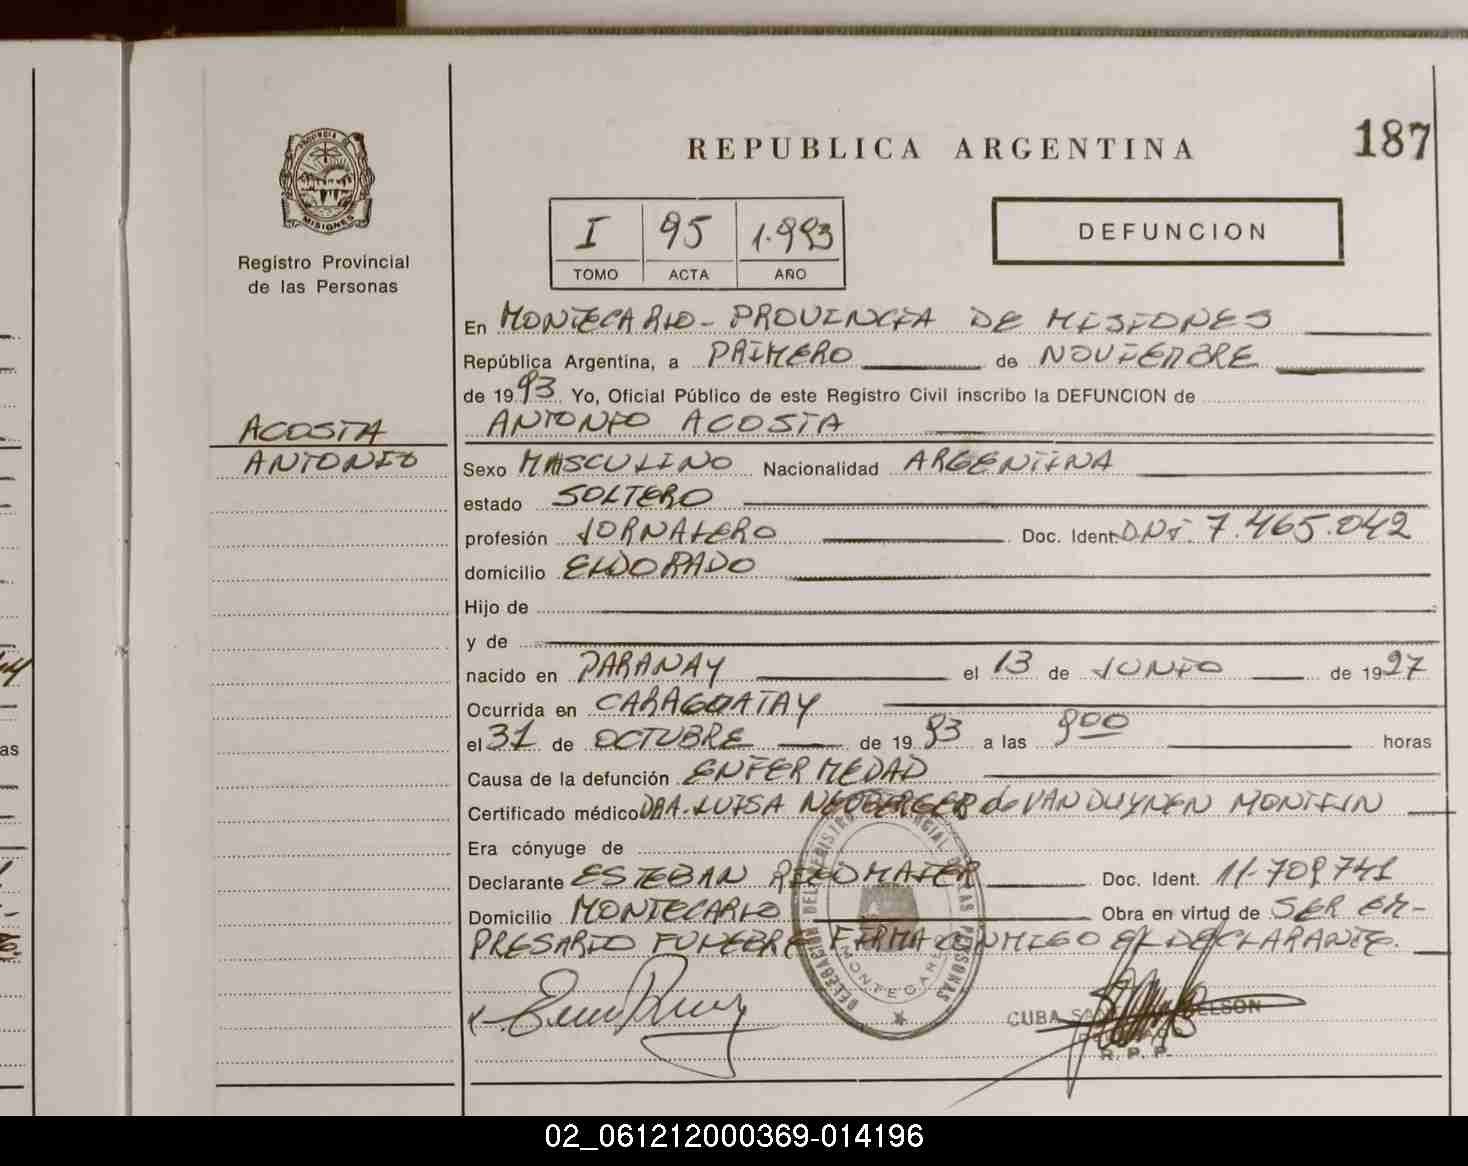 REPUBLICA ARGENTINA
187
PROVINCIA
MISIONES
Registro Provincial
de las Personas
I 95 1.993
TOMO ACTA AÑO
DEFUNCION
En MONTECARLO - PROVINCIA DE MISIONES
República Argentina, a PRIMERO de NOVIEMBRE
de 1993 Yo, Oficial Público de este Registro Civil inscribo la DEFUNCION de
ANTONIO ACOSTA
ACOSTA
ANTONIO
Sexo MASCULINO Nacionalidad ARGENTINA
estado SOLTERO
profesión JORNALERO Doc. Ident DNI. 7.465.042
domicilio ELDORADO
Hijo de
y de
nacido en PARANAY el 13 de JUNIO de 1927
Ocurrida en CARAGUATAY
el 31 de OCTUBRE de 1993 a las 9 00 horas
Causa de la defunción ENFERMEDAD
Certificado médico DRA. LUISA NEUBERGER de VAN DUYNEN
Era cónyuge de
Declarante ESTEBAN Doc. Ident. 11.709741
Domicilio MONTECARLO Obra en virtud de SER EM-
PRESARIO FUNEBRE FIRMA CONMIGO EL DECLARANTE.
DELEGACION DEL REGISTRO PROVINCIAL DE LAS PERSONAS
CUBA
R. P. P.
as
02_061212000369-014196